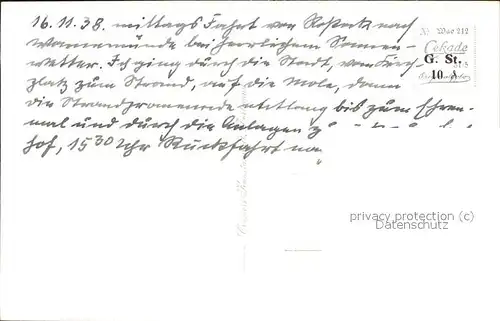 16.11.38. mittags Fahrt von Rostock nach
Warnemünde bei herrlichem Sonnen-
wetter. Ich ging durch die Stadt, vom Kirch-
platz zum Strand, auf die Mole, dann
die Strandpromenade entlang bis zum Ehren-
mal und durch die Anlagen
hof, 15 30 Uhr Rückfahrt na
No War 212
Cekade
G. St.
10 ₰
privacy protection (c)
Datenschutz